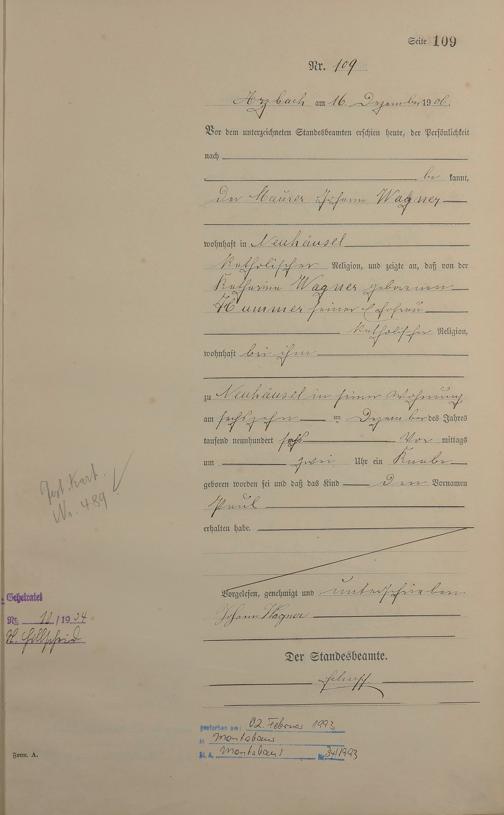 Seite 109
Nr. 109
Arzbach am 16 Dezember 1906.
Vor dem unterzeichneten Standesbeamten erschien heute, der Persönlichkeit
nach
be kannt,
der Maurer Johann Wagner
wohnhaft in Neuhäusel
katholischer Religion, und zeigte an, daß von der
Katharina Wagner geborenen
Hummer seiner Ehefrau
katholischer Religion,
wohnhaft bei ihm
zu Neuhäusel in seiner Wohnung
am sechszehn ten Dezember des Jahres
tausend neunhundert sechs Vor mittags
um zwei Uhr ein Knabe
geboren worden sei und daß das Kind den Vornamen
Paul
erhalten habe.
Vorgelesen, genehmigt und unterschrieben
Johann Wagner
Der Standesbeamte.
Nr. 489
Geheiratet
Nr. 11/1934
gestorben am: 02. Februar 1993
in Montabaur
St. A. Montabaur Nr. 34/1993
Form. A.